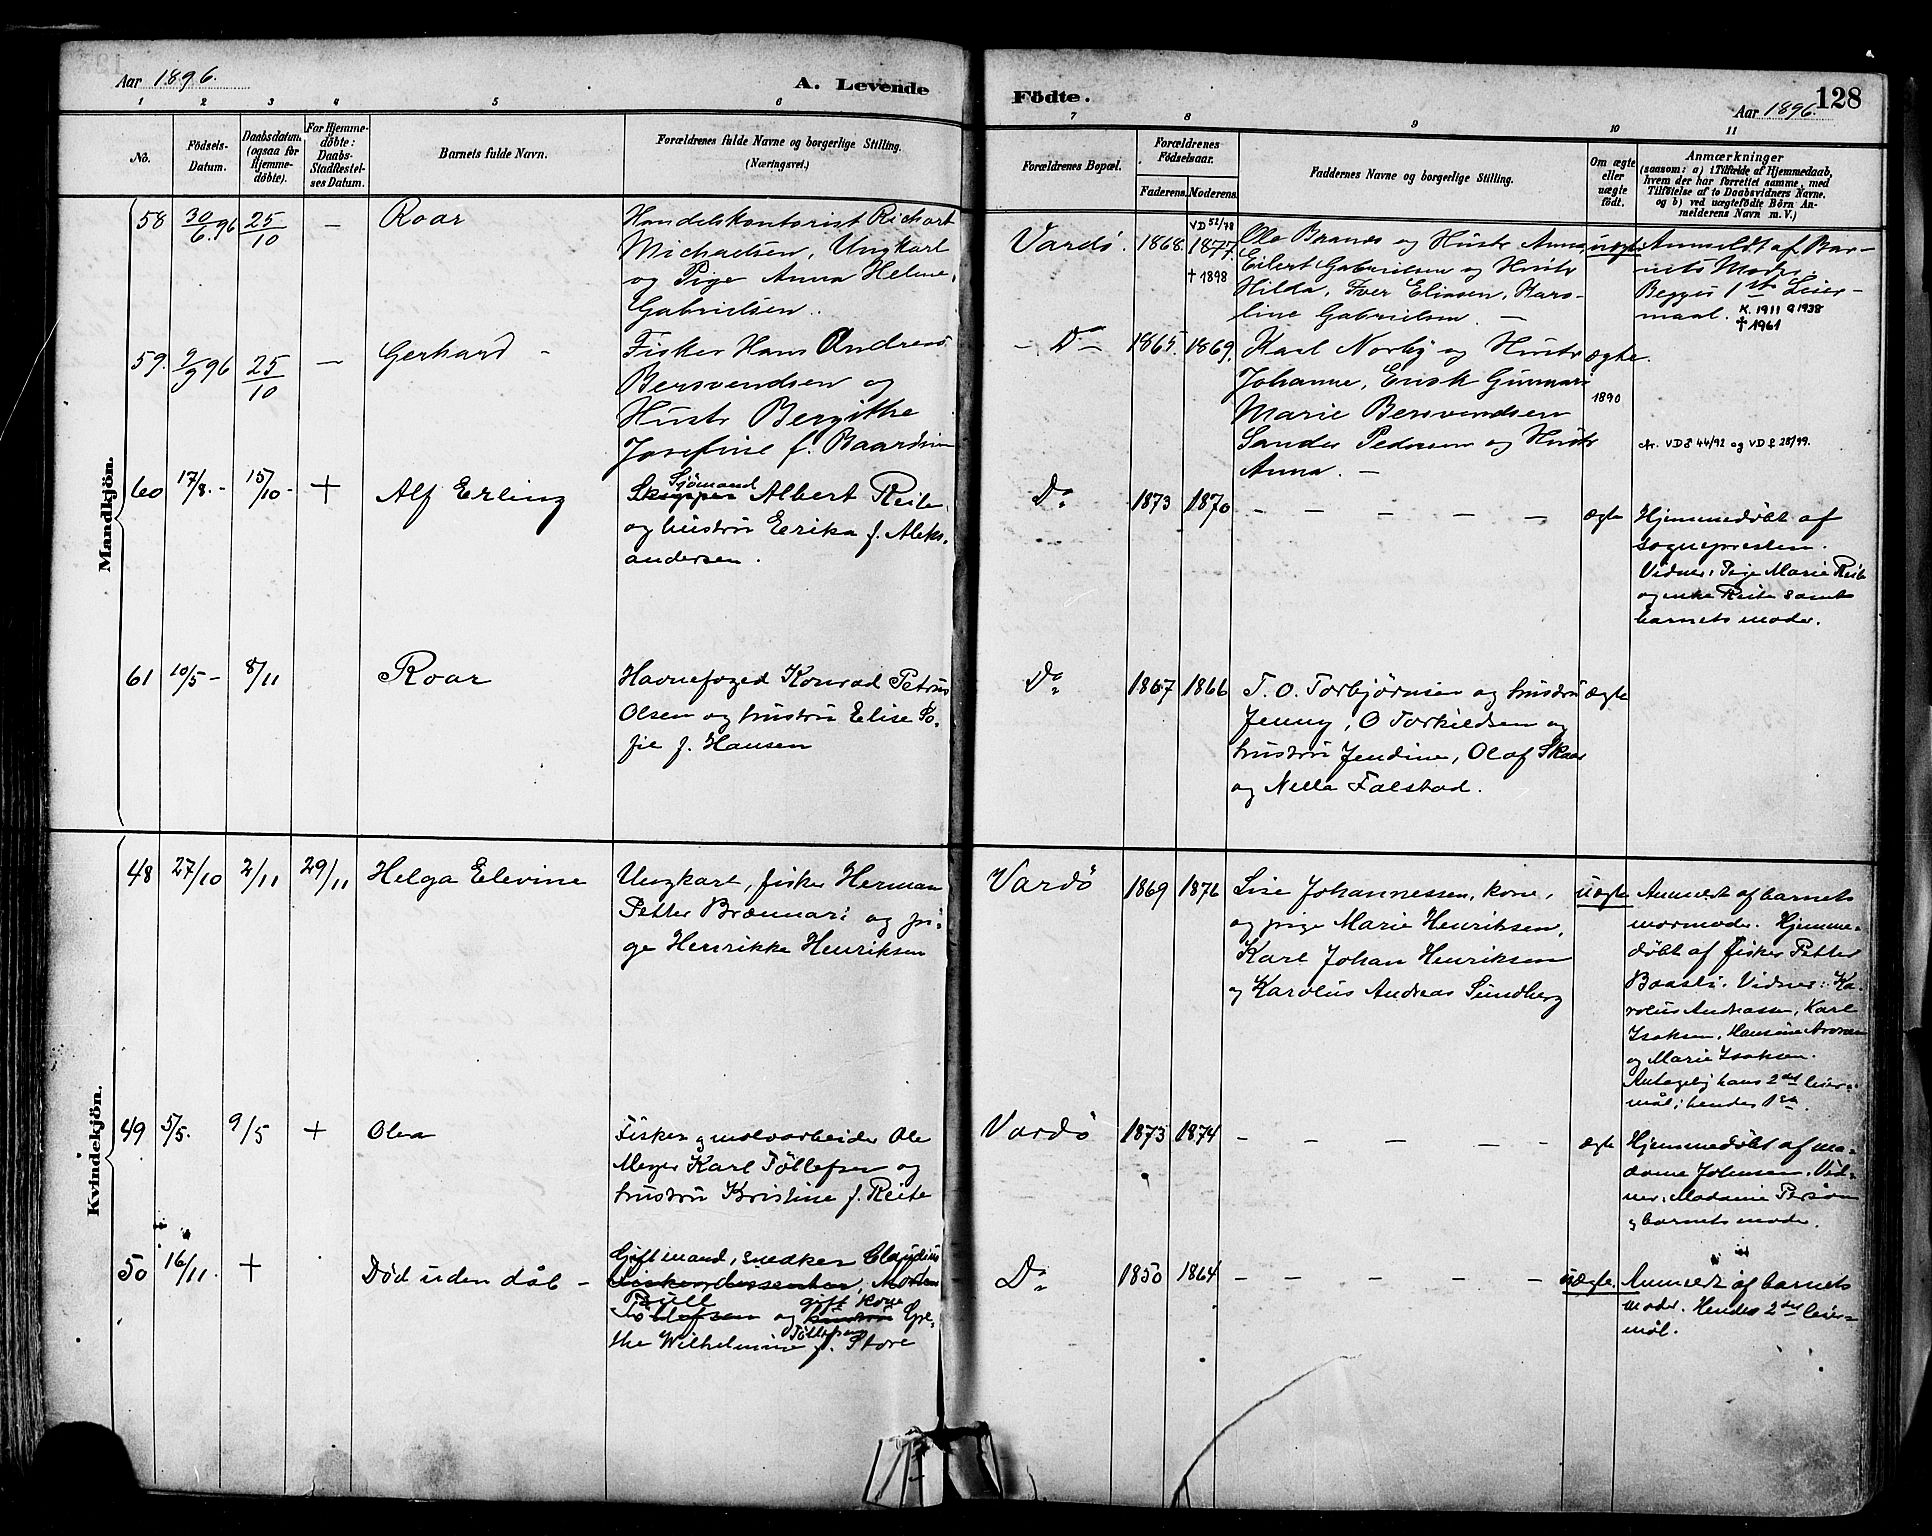 Aar 1896.
A. Levende
Födte.
Aar 1896.
128
1 2 3 4 5 6
7 8 9 10 11
No.
Födsels-
Datum.
Daabsdatum.
(ogsaa for
Hjemme-
döbte).
For Hjemme-
döbte:
Daabs-
Stadfæstel-
ses Datum.
Barnets fulde Navn.
Forældrenes fulde Navne og borgerlige Stilling.
(Næringsvei.)
Forældrenes Bopæl.
Forældrenes
Födselsaar.
Faderens. Moderens.
Faddernes Navne og borgerlige Stilling.
Om ægte
eller
uægte
födt.
Anmærkninger
(saasom: a) i Tilfælde af Hjemmedaab,
hvem der har forrettet samme, med
Tilföielse af to Daabsvidners Navne,
og b) ved uægtefödte Börn An-
melderens Navn m. V.)
Mandkjön.
58 30/6.96 25/10 — Roar
Handelskontorist Richart
Michaelsen, Ungkarl
og Pige Anna Helene
Gabrielsen.
Vardö. 1868. VD 52/78
1877.
† 1898
Ole Brands og Hustr Anna
Eilert Gabrielsen og Hustr
Hilda, Iver Eliasen, Karo-
line Gabrielsen. —
uægte
Anmeldt af Bar-
nets Moder.
Begges 1ste Leier-
maal. K. 1911 G 1938
† 1961
59. 9/9 96 25/10 — Gerhard -
Fisker Hans Andreas
Bersvendsen og
Hustr Bergithe
Josefine f. Baardsen
— Do — 1865. 1869.
Karl Norby og Hustr
Johanne, Erik Gunnari
Marie Bersvendsen
Sander Pedersen og Hustr
Anna. —
ægte.
1890
Cfr. VD ♂ 44/92 og VD ♀ 28/99.
60 17/8.- 15/10- + Alf Erling
Sjömand
Skipper Albert Reite
og hustru Erika f. Aleks-
andersen.
Do 1873 1870
— — — — —
ægte
Hjemmedöbt af
sognepresten.
Vidner: Pige Marie Reite
og enke Reite samt
barnets moder.
61 10/5- 8/11 Roar
Havnefoged Konrad Petrus
Olsen og hustru Elise So-
fie f. Hansen
Do 1867 1866
T. O. Torbjörnsen og hustru
Jenny, O Torkildsen og
hustru Jendine, Olaf Skaar
og Nella Falstad.
ægte
Kvindekjön.
48 27/10 2/11 29/11 Helga Elevine
Ungkarl, fisker Herman
Petter Brænnari og pi-
ge Henrikke Henriksen
Vardö 1869 1876
Lise Johannessen, kone,
og pige Marie Henriksen,
Karl Johan Henriksen
og Karolus Andreas Sundberg
uægte
Anmeldt af barnets
mormoder. Hjemme-
döbt af fisker Petter
Baasti. Vidner: Ka-
rolus Andreassen, Karl
Isaksen, Hansine
og Marie Isaksen.
Antagelig hans 2det leier-
mål; hendes 1ste.
49 5/5. 9/5 + Olea
Fisker og moloarbeider Ole
Meyer Karl Töllefsen og
hustru Kristine f. Reite
Vardö 1873 1874
— — — — —
ægte
Hjemmedöbt af ma-
dame Johnsen. Vid-
ner: Madame Persson
og barnets moder.
50 16/11. + Död uden dåb —
Gift mand, snedker Claudius
Bull gift kone
Töllefsen og hustru Gre-
Töllefsen
the Wilhelmine f. Store
Do 1850 1864
— — — — —
uægte.
Anmeldt af barnets
moder. Hendes 2det leier-
mål.